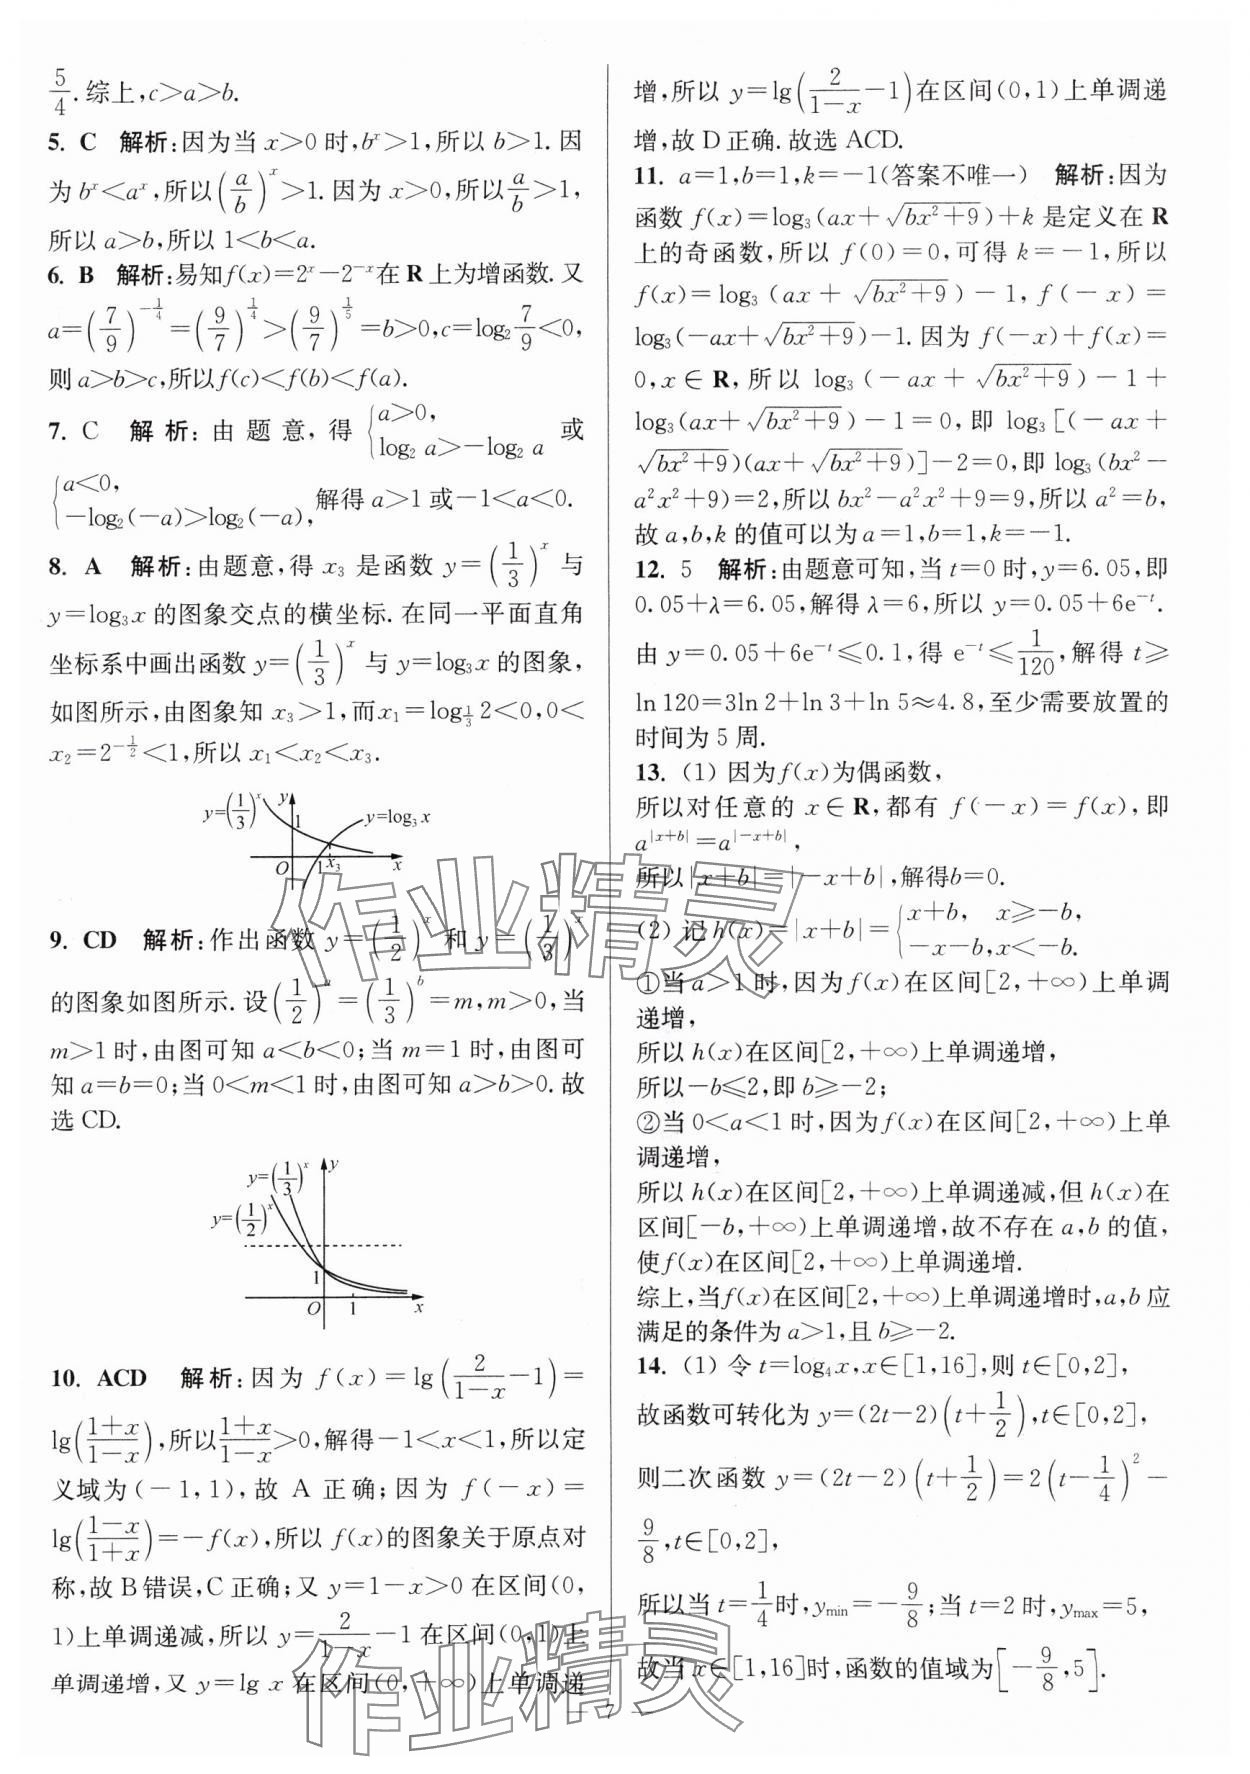 5/4.综上,c>a>b.
5. C 解析:因为当 x>0 时,bˣ>1,所以 b>1.因
为 bˣ<aˣ,所以(a/b)ˣ>1.因为 x>0,所以a/b>1,
所以 a>b,所以 1<b<a.
6. B 解析:易知f(x)=2ˣ-2⁻ˣ在 R 上为增函数.又
a=(7/9)^(-1/4)=(9/7)^(1/4)>(9/7)^(1/5)=b>0,c=log₂7/9<0,
则 a>b>c,所以f(c)<f(b)<f(a).
7. C 解析:由题意,得{a>0, log₂ a>-log₂ a 或
{a<0, -log₂(-a)>log₂(-a), 解得 a>1 或-1<a<0.
8. A 解析:由题意,得 x₃ 是函数 y=(1/3)ˣ 与
y=log₃x 的图象交点的横坐标.在同一平面直角
坐标系中画出函数 y=(1/3)ˣ 与 y=log₃x 的图象,
如图所示,由图象知 x₃>1,而x₁=log_(1/3)2<0,0<
x₂=2^(-1/2)<1,所以 x₁<x₂<x₃.
y=(1/3)ˣ y 1 y=log₃x
O 1 x₃ x
9. CD 解析:作出函数 y=(1/2)ˣ 和 y=(1/3)ˣ
的图象如图所示.设(1/2)ᵃ=(1/3)ᵇ=m,m>0,当
m>1 时,由图可知 a<b<0;当 m=1 时,由图可
知 a=b=0;当 0<m<1 时,由图可知 a>b>0.故
选 CD.
y=(1/3)ˣ y
y=(1/2)ˣ
1
O 1 x
10. ACD 解析:因为 f(x)=lg(2/(1-x)-1)=
lg((1+x)/(1-x)),所以(1+x)/(1-x)>0,解得-1<x<1,所以定
义域为(-1,1),故 A 正确;因为 f(-x)=
lg((1-x)/(1+x))=-f(x),所以 f(x)的图象关于原点对
称,故 B 错误,C 正确;又 y=1-x>0 在区间(0,
1)上单调递减,所以 y=2/(1-x)-1 在区间(0,1)上
单调递增,又 y=lg x 在区间(0,+∞)上单调递
增,所以 y=lg(2/(1-x)-1)在区间(0,1)上单调递
增,故 D 正确.故选 ACD.
11. a=1,b=1,k=-1(答案不唯一) 解析:因为
函数 f(x)=log₃(ax+√(bx²+9))+k 是定义在 R
上的奇函数,所以 f(0)=0,可得 k=-1,所以
f(x)=log₃(ax+√(bx²+9))-1,f(-x)=
log₃(-ax+√(bx²+9))-1.因为 f(-x)+f(x)=
0,x∈R,所以 log₃(-ax+√(bx²+9))-1+
log₃(ax+√(bx²+9))-1=0,即 log₃[(-ax+
√(bx²+9))(ax+√(bx²+9))]-2=0,即 log₃(bx²-
a²x²+9)=2,所以 bx²-a²x²+9=9,所以 a²=b,
故 a,b,k 的值可以为 a=1,b=1,k=-1.
12. 5 解析:由题意可知,当 t=0 时,y=6.05,即
0.05+λ=6.05,解得 λ=6,所以 y=0.05+6e⁻ᵗ.
由 y=0.05+6e⁻ᵗ≤0.1,得 e⁻ᵗ≤1/120,解得 t≥
ln 120=3ln 2+ln 3+ln 5≈4.8,至少需要放置的
时间为 5 周.
13. (1) 因为f(x)为偶函数,
所以对任意的 x∈R,都有 f(-x)=f(x),即
a^|x+b|=a^|-x+b|,
所以|x+b|=|-x+b|,解得b=0.
(2) 记h(x)=|x+b|={x+b, x≥-b, -x-b,x<-b.
①当 a>1 时,因为f(x)在区间[2,+∞)上单调
递增,
所以 h(x)在区间[2,+∞)上单调递增,
所以-b≤2,即 b≥-2;
②当 0<a<1 时,因为f(x)在区间[2,+∞)上单
调递增,
所以 h(x)在区间[2,+∞)上单调递减,但 h(x)在
区间[-b,+∞)上单调递增,故不存在 a,b 的值,
使f(x)在区间[2,+∞)上单调递增.
综上,当f(x)在区间[2,+∞)上单调递增时,a,b 应
满足的条件为 a>1,且 b≥-2.
14. (1) 令 t=log₄x,x∈[1,16],则 t∈[0,2],
故函数可转化为 y=(2t-2)(t+1/2),t∈[0,2],
则二次函数 y=(2t-2)(t+1/2)=2(t-1/4)²-
9/8,t∈[0,2],
所以当 t=1/4时,yₘᵢₙ=-9/8;当 t=2 时,yₘₐₓ=5,
故当 x∈[1,16]时,函数的值域为[-9/8,5].
— 7 —
作业精灵
作业精灵